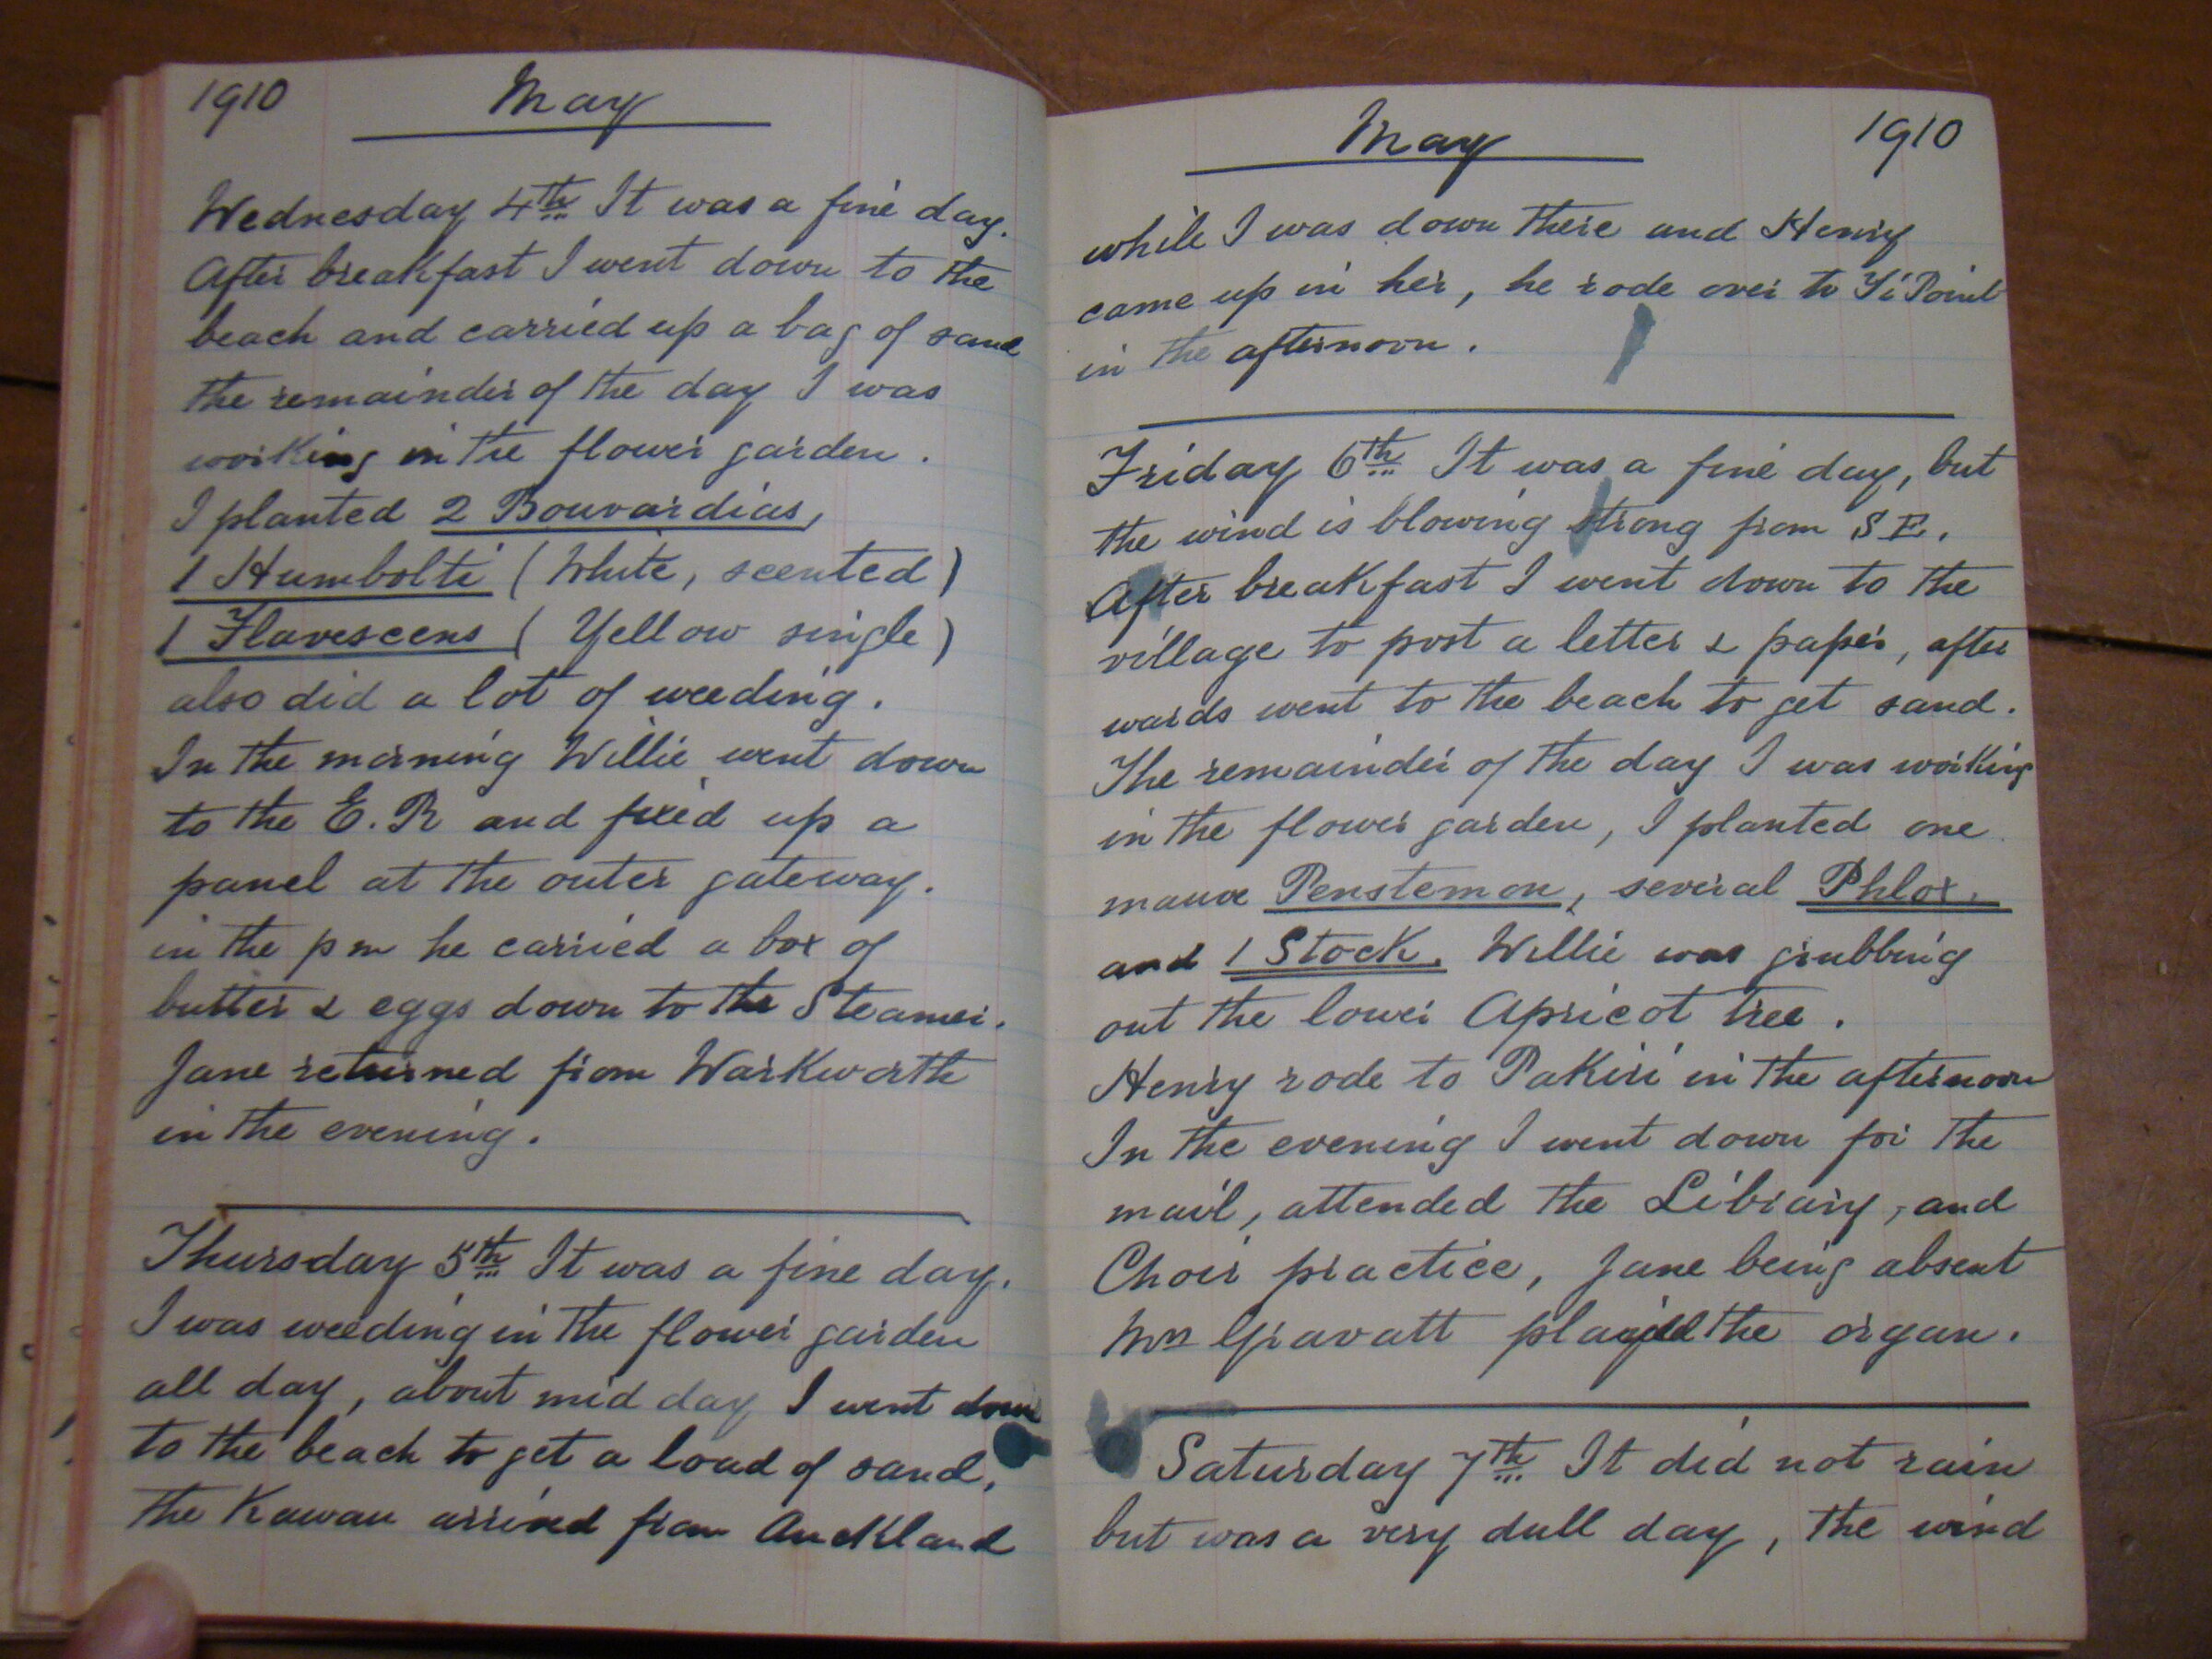 1910 May
Wednesday 4th It was a fine day.
After breakfast I went down to the
beach and carried up a bag of sand
the remainder of the day I was
working in the flower garden.
I planted 2 Bouvardias,
1 Humbolti (White, scented)
1 Flavescens (Yellow single)
also did a lot of weeding.
In the morning Willie went down
to the E.R and fixed up a
panel at the outer gateway.
in the pm he carried a box of
butter & eggs down to the Steamer.
Jane returned from Warkworth
in the evening.
Thursday 5th It was a fine day.
I was weeding in the flower garden
all day, about mid day I went down
to the beach to get a load of sand,
the Kawau arrived from Auckland
May 1910
while I was down there and Henry
came up in her, he rode over to Ti Point
in the afternoon.
Friday 6th It was a fine day, but
the wind is blowing strong from S E.
After breakfast I went down to the
village to post a letter & paper, after
wards went to the beach to get sand.
The remainder of the day I was working
in the flower garden, I planted one
mauve Penstemon, several Phlox.
and 1 Stock. Willie was grubbing
out the lower Apricot tree.
Henry rode to Pakiri in the afternoon
In the evening I went down for the
mail, attended the Library, and
Choir practice, Jane being absent
Mrs Gravatt played the organ.
Saturday 7th It did not rain
but was a very dull day, the wind